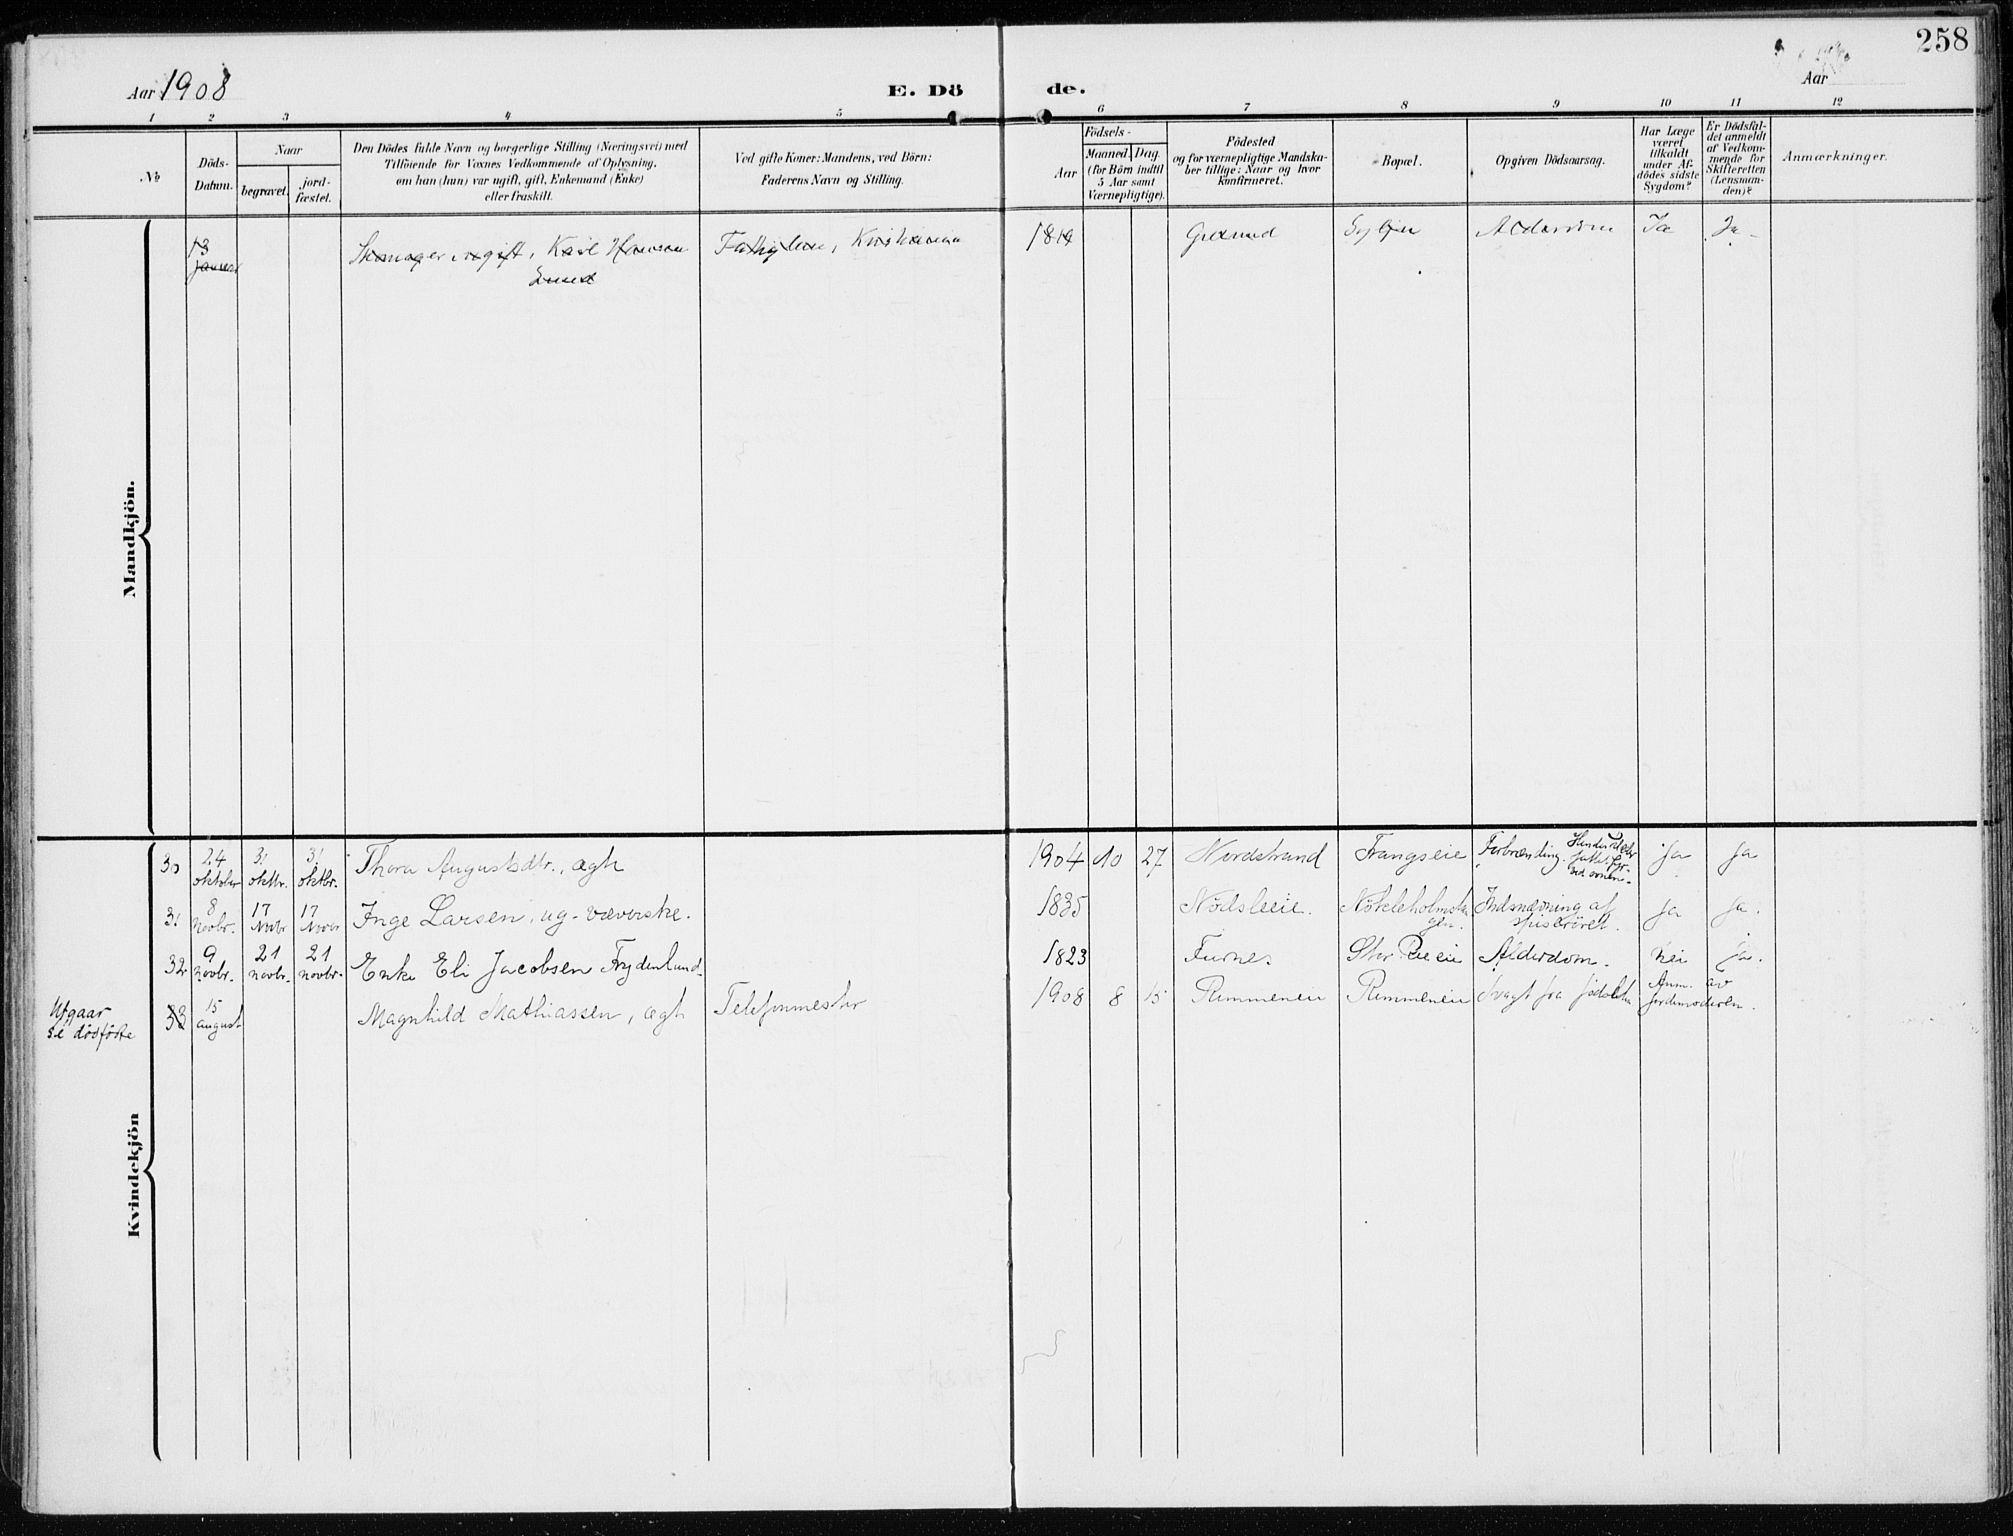 258
Aar 1908
E. Dö de.
Aar
1 2 3 4 5 6 7 8 9 10 11 12
№
Döds-
Datum.
Naar
begravet.
jord-
fæstet.
Den Dödes fulde Navn og borgerlige Stilling (Næringsvei) med
Tilföiende for Voxnes Vedkommende af Oplysning,
om han (hun) var ugift, gift, Enkemand (Enke)
eller fraskilt.
Ved gifte Koner: Mandens, ved Börn:
Faderens Navn og Stilling.
Födsels-
Aar
Maaned.
Dag.
(for Börn indtil
5 Aar samt
Værnepligtige).
Födested
og for værnepligtige Mandska-
ber tillige: Naar og hvor
konfirmeret.
Bopæl.
Opgiven Dödsaarsag.
Har Læge
været
tilkaldt
under Af-
dödes sidste
Sygdom?
Er Dödsfal-
det anmeldt
af Vedkom-
mende for
Skifteretten
(Lensman-
den)?
Anmærkninger.
Mandkjön.
13
Januar
Skomager, ugift, Karl Hansen
Lund
Kristiania
Ja
Ja
Kvindekjön
30
24
oktober
31
oktbr.
31
oktbr.
Thora Augustsdtr., ægte
1904 10 27
Nordstrand
Frangseie
Forbrænding.
ja
ja
31
8
novbr.
17
Novbr
17
Novbr
Inge Larsen, ug. væverske.
1835
Nødsleeie.
Indsnævning af
spiserøret.
ja
ja.
32
9
novbr.
21
novbr.
21
novbr.
Enke Eli Jacobsen Frydenlund
1823
Furnes
Alderdom.
Nei
ja.
Utgaar
se dødfødte
33
15
august
Magnhild Mathiassen, ægte
Telefonmester
1908 8 15
Rummeneie
Rummeneie
Svagt fra fødselen
Anm. av
jordmoderen.